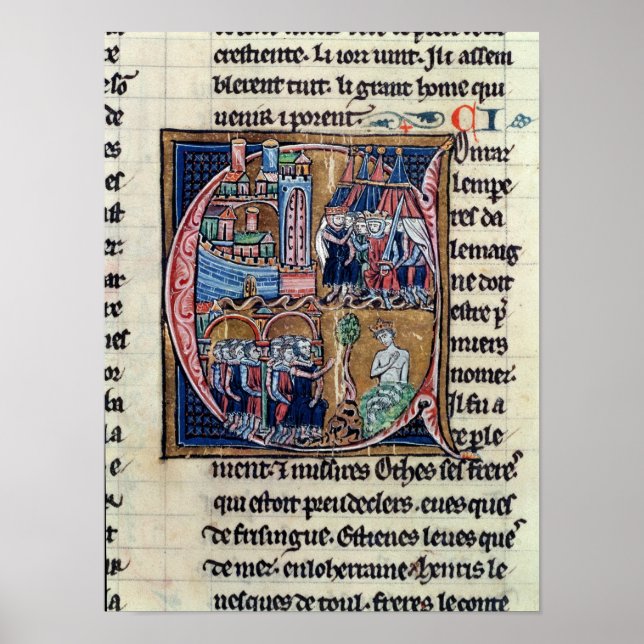 eso
de
es
te
st
el
or
ba
la
e
la
a
crestiente. Li iorz vint. Il i assem
blerent tuit. li grant home qui
venir i porent. CI
Onrar
lempe
res da
lemaig
ne doit
estre p̾
miers
nomez.
Il fu a
ce ple
ment. ⁊ missires Othes ses freres
qui estoit preudeclers. eves ques
de frisingue. Estienes leves ques
de mez. en loherraine. henris le
vesques de toul. freres le conte